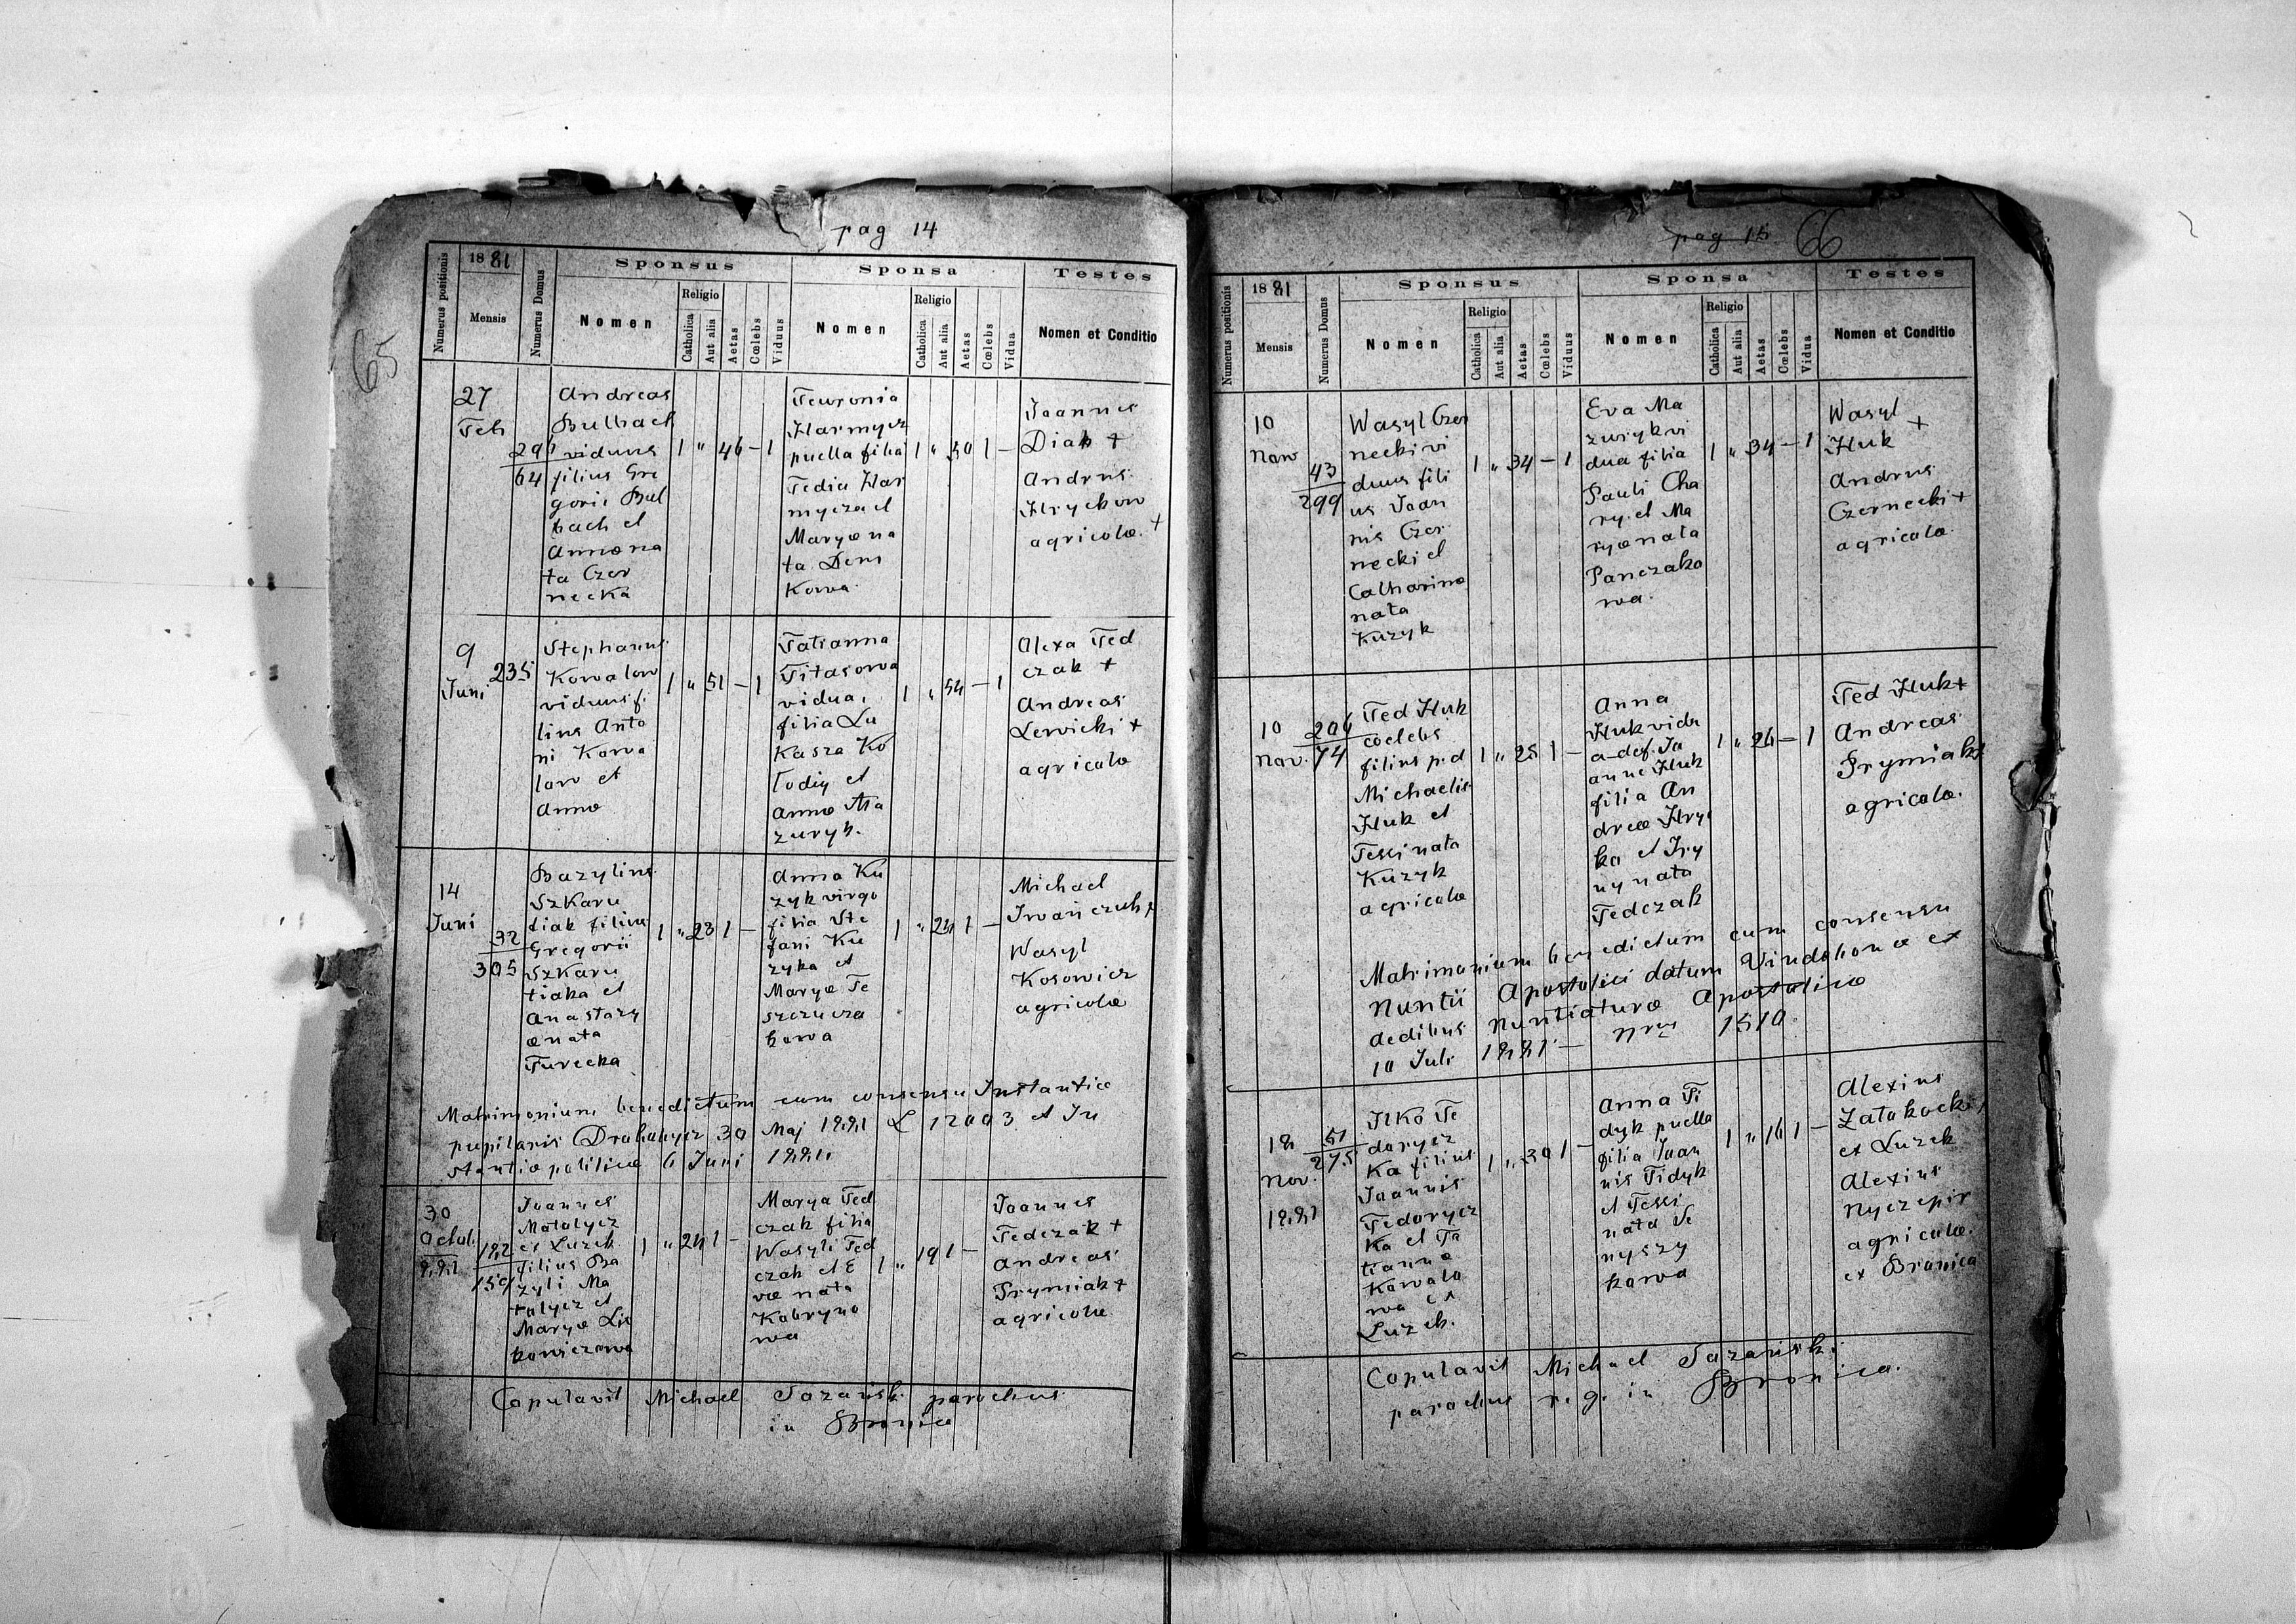 pag 14
65
Numerus positionis
1881
Mensis
Numerus Domus
Sponsus
Nomen
Religio
Catholica
Aut alia
Aetas
Cœlebs
Viduus
Sponsa
Nomen
Religio
Catholica
Aut alia
Aetas
Cœlebs
Vidua
Testes
Nomen et Conditio
27
Feb
64
Andreas
Bulbach
viduus
filius Gre
gorii Bul
bach et
Annæ na
ta Czer
necka
1 " 46 — 1
Fewronia
Harmycz
puella filia
Fedia Har
mycza et
Maryæ na
ta Dem
kowa
1 " 30 1 —
Joannes
Diak +
Andrus
Hryckow
agricolæ +
9
Juni
235
Stephanus
Kowalow
viduus fi
lius Anto
ni Kowa
low et
Annæ
1 " 51 — 1
Tatianna
Titasowa
vidua,
filia Lu
kasza Ko
lodiy et
Annæ Ma
zuryk.
1 " 54 — 1
Alexa Fed
czak +
Andreas
Lewicki +
agricolæ
14
Juni
32
305
Bazylius
Szkaru
tiak filius
Gregorii
Szkaru
tiaka et
Anastazy
æ nata
Turecka
1 " 23 1 —
Anna Ku
zyk virgo
filia Ste
fani Ku
zyka et
Maryæ Te
szczucza
kowa
1 " 24 1 —
Michael
Iwańczuk +
Wasyl
Kosowicz
agricolæ
Matrimonium benedictum cum consensu Instantiæ
pupilaris Drohobycz 30 Maj 1881 L 12003 et In
stantiæ politicæ 6 Juni 1881.
30
Octob.
1881
182
159
Joannes
Matolycz
ex Luzek
filius Ba
zyli Ma
tolycz et
Maryæ Lis
kowiczowa
1 " 24 1 —
Marya Fed
czak filia
Wasyli Fed
czak et E
væ nata
Kobryno
wa
1 " 19 1 —
Joannes
Fedczak +
Andreas
Prymiak +
agricolæ
Copulavit Michael parochus
in Bronica
pag 15
66
Numerus positionis
1881
Mensis
Numerus Domus
Sponsus
Nomen
Religio
Catholica
Aut alia
Aetas
Cœlebs
Viduus
Sponsa
Nomen
Religio
Catholica
Aut alia
Aetas
Cœlebs
Vidua
Testes
Nomen et Conditio
10
Nov
43
299
Wasyl Czer
necki vi
duus fili
us Joan
nis Czer
necki et
Catharinæ
nata
Kuzyk
1 " 34 — 1
Eva Ma
zuryk vi
dua filia
Pauli Cha
ry et Ma
ryæ nata
Panczako
wa.
1 " 34 — 1
Wasyl +
Huk
Andrus
Czernecki +
agricolæ
10
Nov.
206
74
Fed Huk
coelebs
filius p.d
Michaelis
Huk et
Tessi nata
Kuzyk
agricola
1 " 25 1 —
Anna
Huk vidu
a def. Jo
anne Huk
filia An
dreæ Hry
ka et Iry
ny nata
Fedczak
1 " 26 — 1
Fed Huk +
Andreas
Prymiak +
agricolæ.
Matrimonium benedictum cum consensu
Nuntii Apostolici datum Vindobonæ ex
aedibus Nuntiaturæ Apostolicæ
10 Juli 1881 — Nrus 1510.
18
Nov.
1881
51
275
Ilko Fe
dorycz
ka filius
Joannis
Fedorycz
ka et Ta
tiannæ
Kowalo
wa ex
Luzek.
1 " 30 1 —
Anna Ti
dyk puella
filia Joan
nis Tidyk
et Tessi
nata Se
nyszy
kowa
1 " 16 1 —
Alexius
Zatokocki
ex Luzek
Alexius
Nyczepir
agricolæ
ex Bronica
Copulavit Michael
parochus r. g. in Bronica.